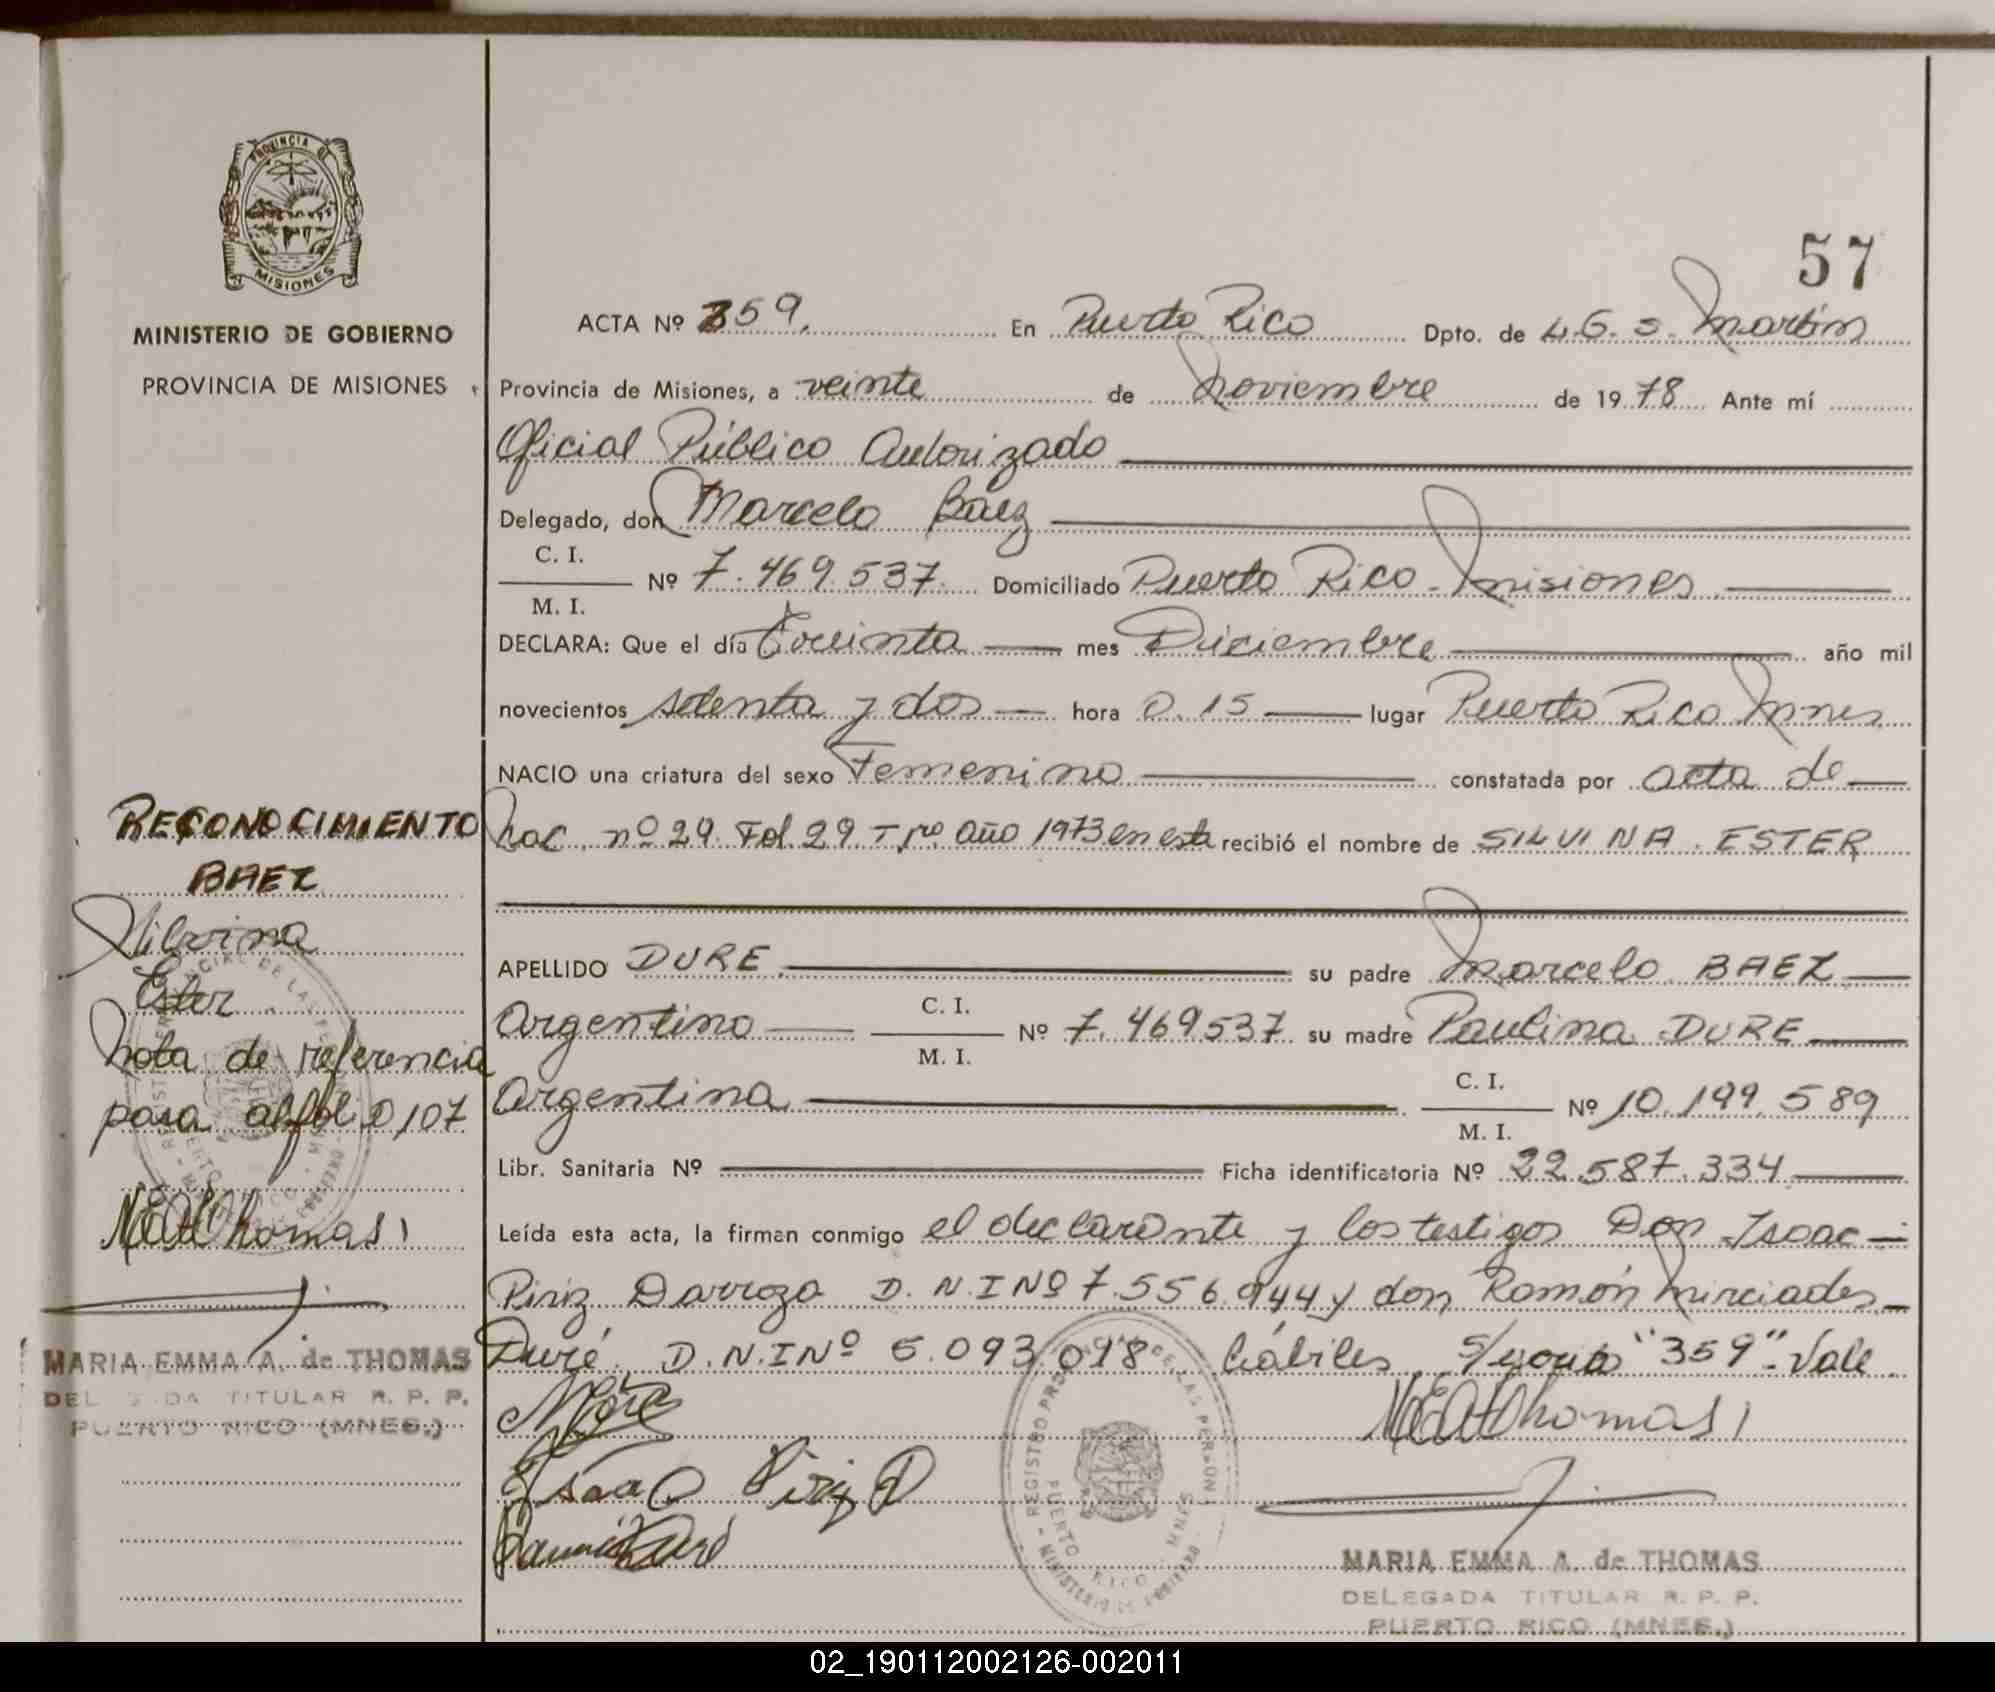 57
PROVINCIA DE
MISIONES
MINISTERIO DE GOBIERNO
PROVINCIA DE MISIONES
ACTA Nº 359. En Puerto Rico Dpto. de L. G. S. Martín
Provincia de Misiones, a veinte de Noviembre de 1978 Ante mí
Oficial Público Autorizado
Delegado, don Marcelo Baez
C. I.
M. I. Nº 7.469.537. Domiciliado Puerto Rico Misiones
DECLARA: Que el día treinta mes Diciembre año mil
novecientos setenta y dos hora 0.15 lugar Puerto Rico Mnes
NACIO una criatura del sexo Femenino constatada por acta de
Nac. nº 29. Fol. 29. Tº. año 1973 en esta recibió el nombre de SILVINA ESTER
APELLIDO DURE su padre Marcelo BAEZ
Argentino C. I. M. I. Nº 7.469537 su madre Paulina DURE
Argentina C. I. M. I. Nº 10.199.589
Libr. Sanitaria Nº Ficha identificatoria Nº 22.587.334
Leída esta acta, la firman conmigo el declarante y los testigos Don Isaac
Piriz Darroza D.N.I Nº 7.556.944 y don Ramón Mirciades
Duré D.N.I Nº 5.093.098 hábiles "359" Vale
Isaac Piriz D
MEAThomas
REGISTRO PROVINCIAL DE LAS PERSONAS
PUERTO RICO MNES
MARIA EMMA A. de THOMAS
DELEGADA TITULAR R. P. P.
PUERTO RICO (MNES.)
RECONOCIMIENTO
BAEZ
Silvina
Ester
Nota de referencia
para al folio 107
MEAThomas
MARIA EMMA A. de THOMAS
DELEGADA TITULAR R. P. P.
PUERTO RICO (MNES.)
02_190112002126-002011